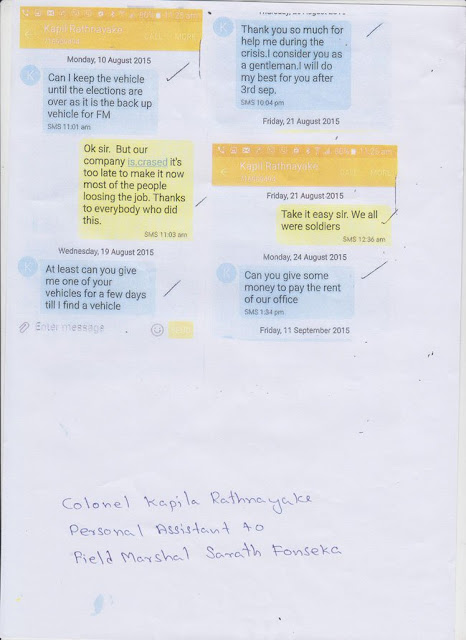 Kapil Rathnayake
CALL MORE
Monday, 10 August 2015
K
Can I keep the vehicle
until the elections are
over as it is the back up
vehicle for FM
SMS 11:01 am
Ok sir. But our
company is.crased it's
too late to make it now
most of the people
loosing the job. Thanks
to everybody who did
this.
SMS 11:03 am
Wednesday, 19 August 2015
K
At least can you give
me one of your
vehicles for a few days
till I find a vehicle
Enter message
SEND
August 2015
K
Thank you so much for
help me during the
crisis.I consider you as
a gentleman.I will do
my best for you after
3rd sep.
SMS 10:04 pm
Friday, 21 August 2015
Kapil Rathnayake
MORE
Friday, 21 August 2015
Take it easy sir. We all
were soldiers
SMS 12:36 am
Monday, 24 August 2015
K
Can you give some
money to pay the rent
of our office
SMS 1:34 pm
Friday, 11 September 2015
Colonel Kapila Rathnayake
Personal Assistant to
Field Marshal Sarath Fonseka